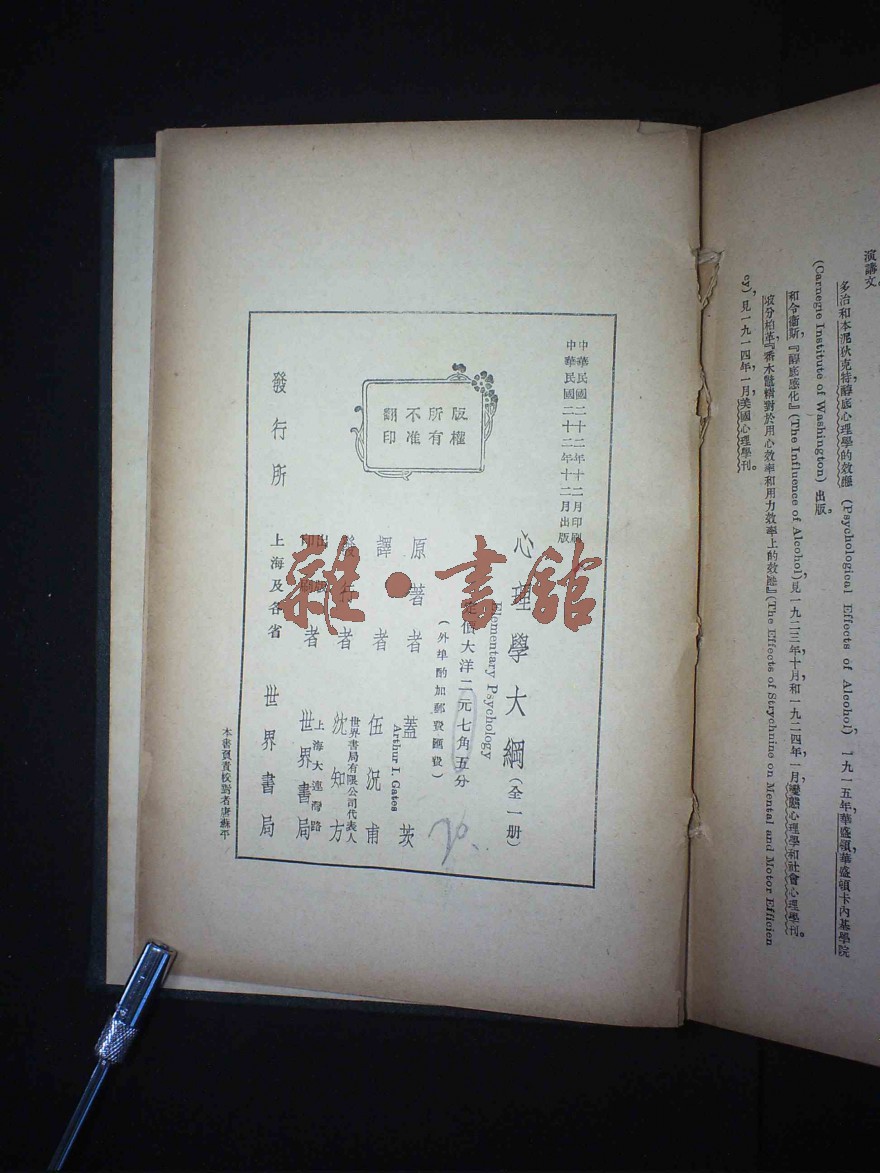 演講文。
多治和本泥狄克特醇底心理學的效應 (Psychological Effects of Alcohol)，一九一五年華盛頓華盛頓卡內基學院
(Carnegie Institute of Washington) 出版。
和令衞斯，『醇底感化』(The Influence of Alcohol)見一九二三年十月和一九二四年一月，變態心理學和社會心理學刊。
坡分柏革，『番木鼈精對於用心效率和用力效率上的效應』(The Effects of Strychnine on Mental and Motor Efficien
cy)，見一九一四年一月，美國心理學刊。
中華民國二十二年十二月印刷
中華民國二十二年十二月出版
心理學大綱（全一册）
Elementary Psychology
定價大洋二元七角五分
（外埠酌加郵費匯費）
版權
所有
不准
翻印
原著者 蓋茨
Arthur I. Gates
譯者 伍況甫
世界書局有限公司代表人
發行者 沈知方
出版
印刷者 上海大連灣路
世界書局
發行所 上海及各省 世界書局
本書負責校對者唐蘇平
雜·書館